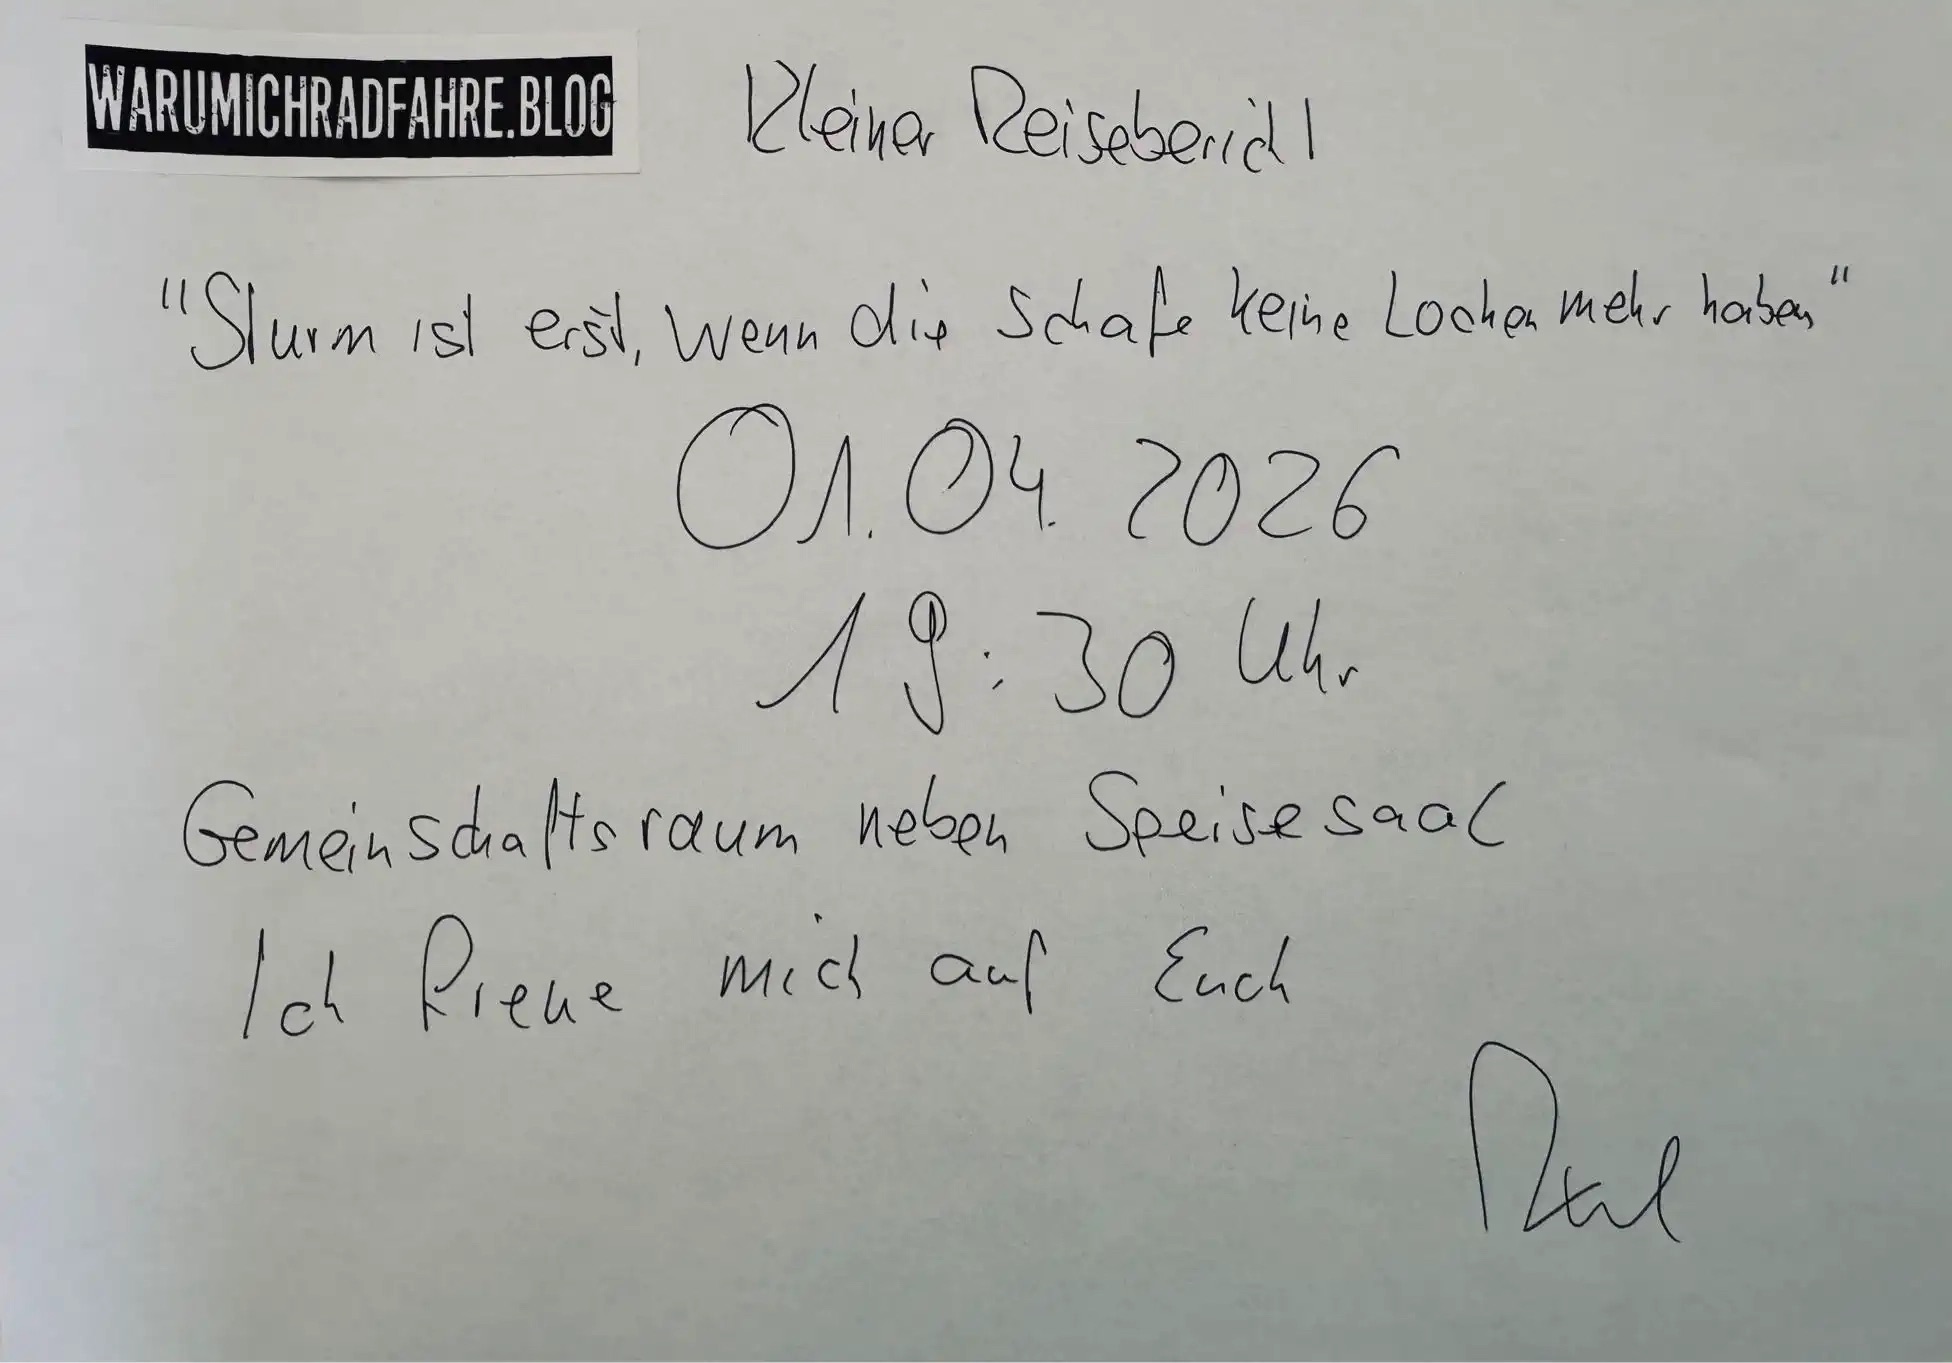 WARUMICHRADFAHRE.BLOG
Kleiner Reisebericht
"Sturm ist erst, wenn die Schafe keine Locken mehr haben"
01.04.2026
19:30 Uhr
Gemeinschaftsraum neben Speisesaal
Ich freue mich auf Euch